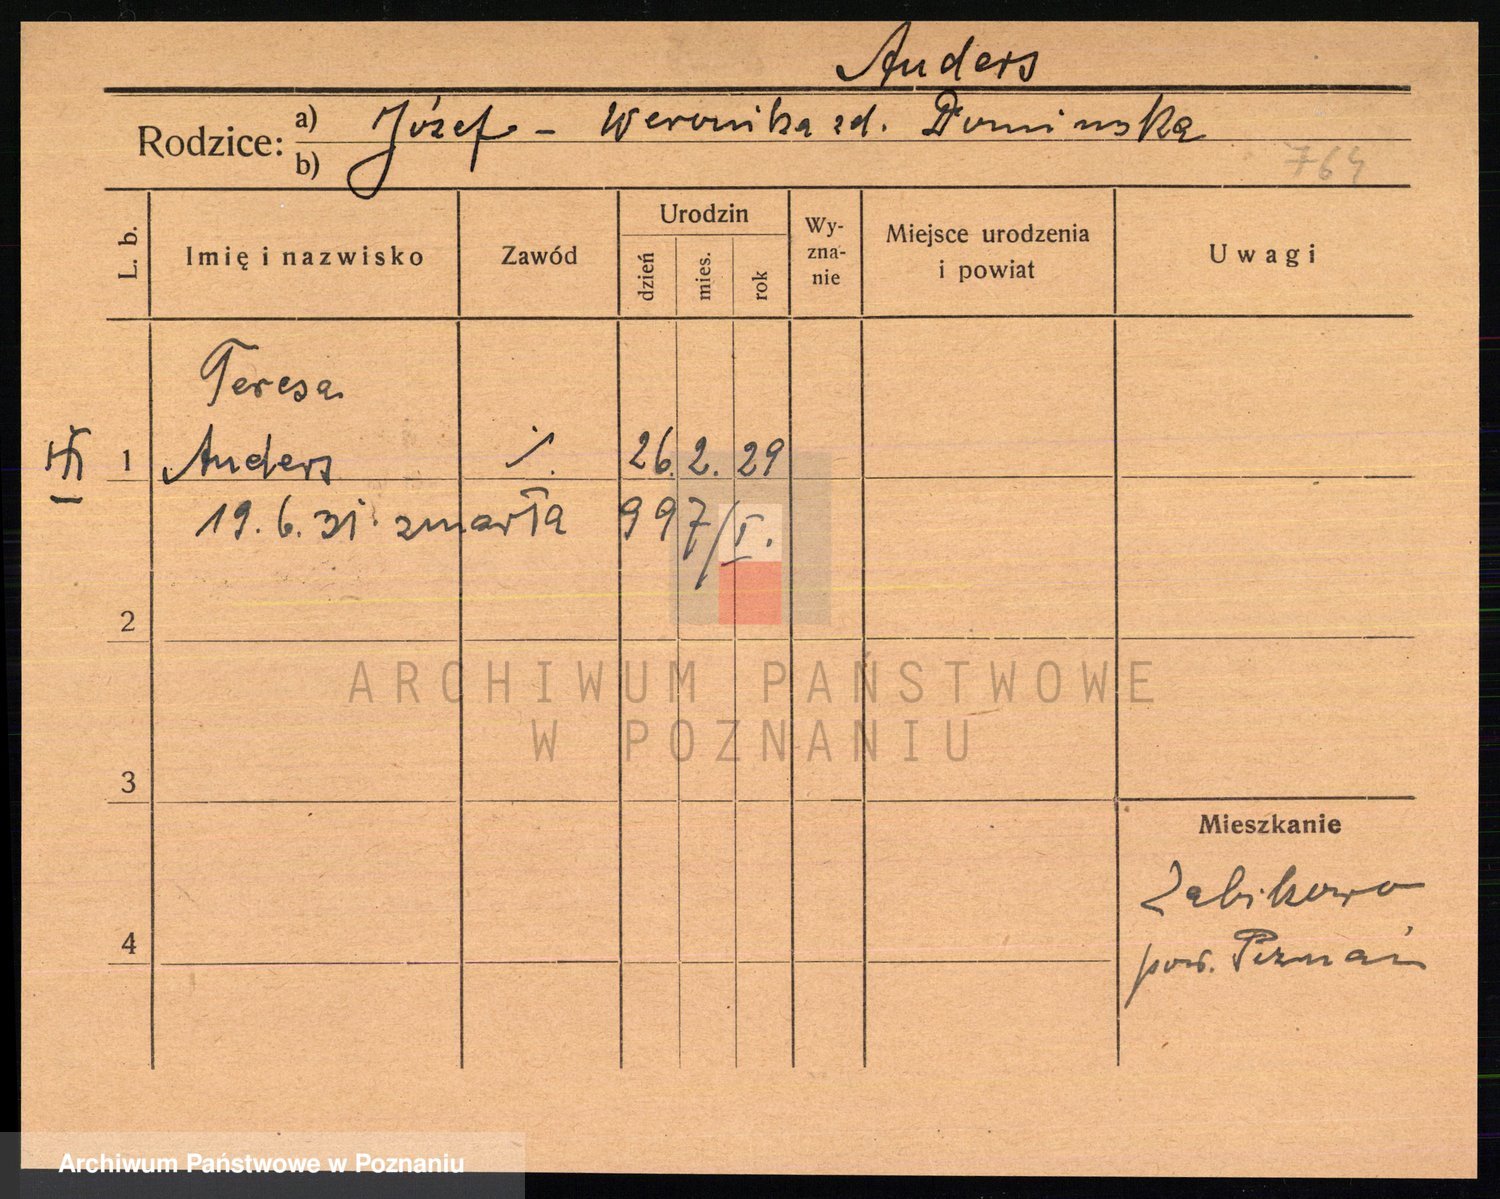 Anders
Rodzice: a) Józef - Weronika zd. Domińska
b)
764
L. b. Imię i nazwisko Zawód Urodzin dzień mies. rok Wy-zna-nie Miejsce urodzenia i powiat Uwagi
Teresa
1 Anders ./. 26. 2. 29
19. 6. 31 zmarła 997/I.
2
ARCHIWUM PAŃSTWOWE
W POZNANIU
3
Mieszkanie
Żabikowo
4 pow. Poznań
Archiwum Państwowe w Poznaniu